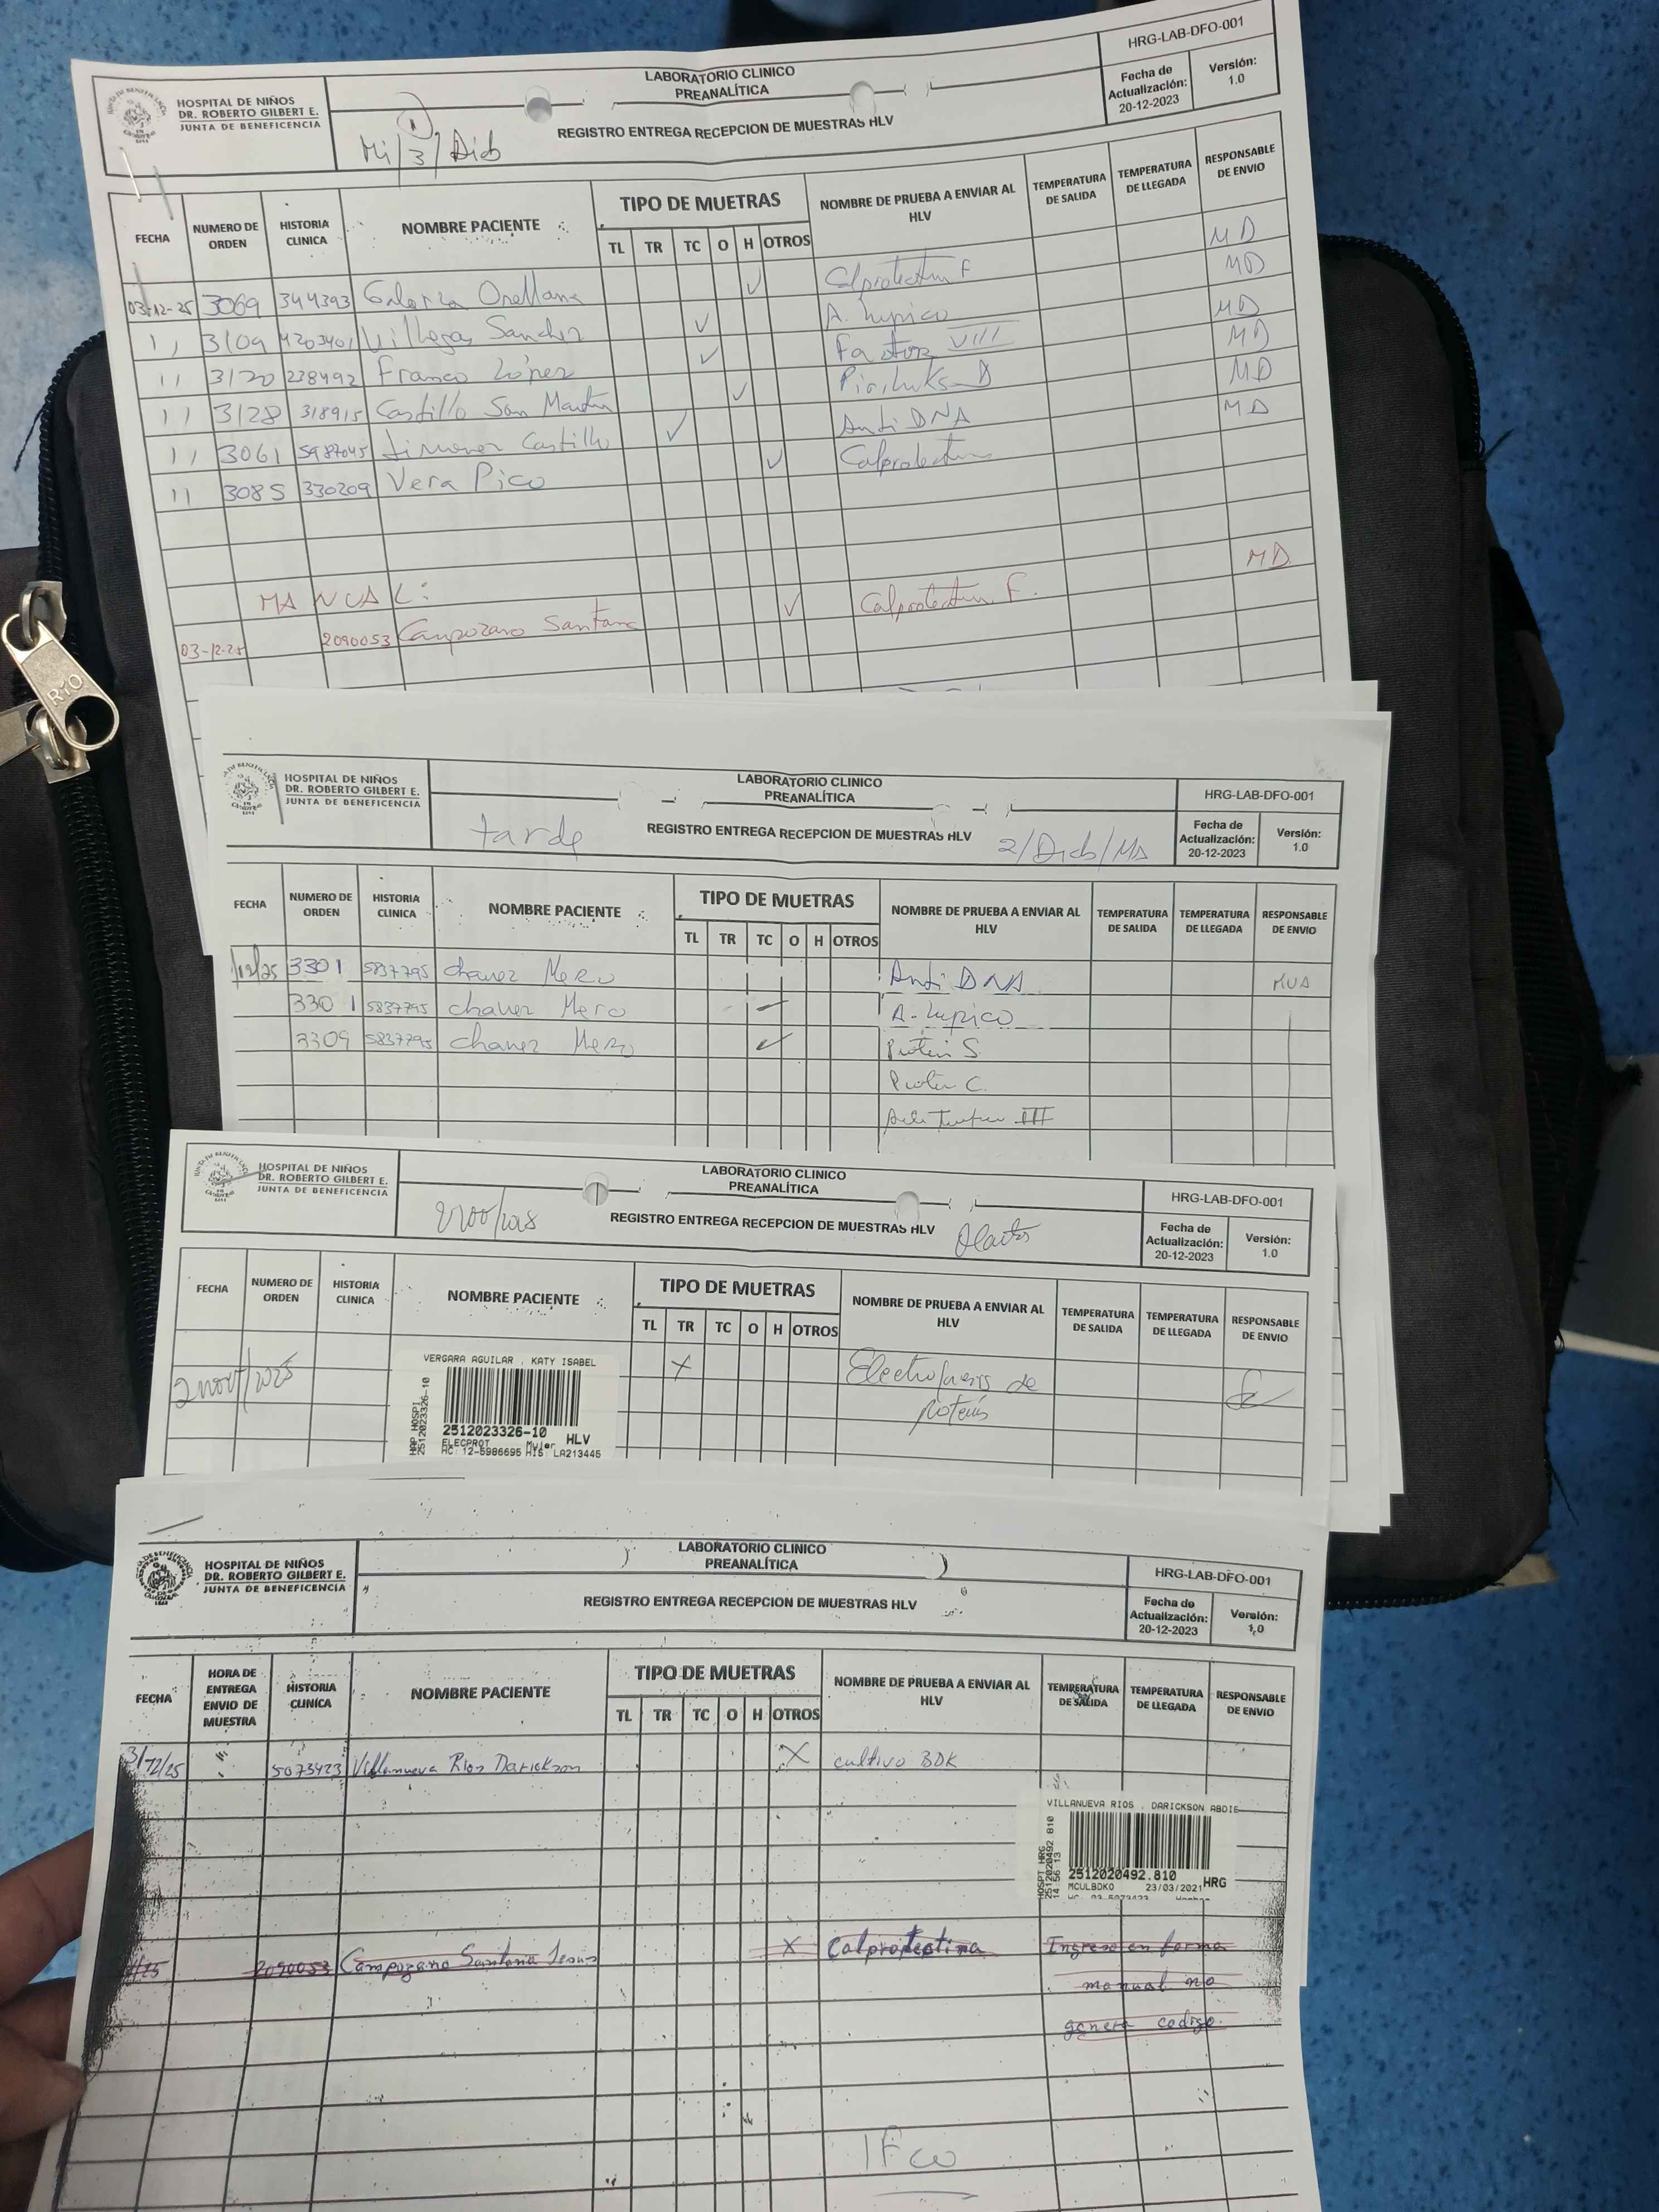 HOSPITAL DE NIÑOS
DR. ROBERTO GILBERT E.
JUNTA DE BENEFICENCIA
LABORATORIO CLINICO
PREANALÍTICA
REGISTRO ENTREGA RECEPCION DE MUESTRAS HLV
HRG-LAB-DFO-001
Fecha de Actualización: 20-12-2023
Versión: 1.0
Mi/3/Dicb
FECHA NUMERO DE ORDEN HISTORIA CLINICA NOMBRE PACIENTE TIPO DE MUETRAS NOMBRE DE PRUEBA A ENVIAR AL HLV TEMPERATURA DE SALIDA TEMPERATURA DE LLEGADA RESPONSABLE DE ENVIO
TL TR TC O H OTROS
03-12-25 3069 344393 Orellana ✓ MD
11 3109 Villegas Sanchez ✓ A. lupico MD
11 3120 238492 Franco López ✓ Factor VIII MD
11 3128 318915 Castillo San Martin ✓ MD
11 3061 5987045 Jimenez Castillo ✓ Anti DNA MD
11 3085 330209 Vera Pico ✓ MD
MANUAL:
03-12-25 2090053 Campozano Santana ✓ F. MD
HOSPITAL DE NIÑOS
DR. ROBERTO GILBERT E.
JUNTA DE BENEFICENCIA
LABORATORIO CLINICO
PREANALÍTICA
REGISTRO ENTREGA RECEPCION DE MUESTRAS HLV
HRG-LAB-DFO-001
Fecha de Actualización: 20-12-2023
Versión: 1.0
tarde
2/Dicb/MA
FECHA NUMERO DE ORDEN HISTORIA CLINICA NOMBRE PACIENTE TIPO DE MUETRAS NOMBRE DE PRUEBA A ENVIAR AL HLV TEMPERATURA DE SALIDA TEMPERATURA DE LLEGADA RESPONSABLE DE ENVIO
TL TR TC O H OTROS
3301 5837795 chavez Mero Anti DNA
3301 5837795 chavez Mero A. lupico
3309 5837795 chavez Mero ✓ S.
C.
III
HOSPITAL DE NIÑOS
DR. ROBERTO GILBERT E.
JUNTA DE BENEFICENCIA
LABORATORIO CLINICO
PREANALÍTICA
REGISTRO ENTREGA RECEPCION DE MUESTRAS HLV
HRG-LAB-DFO-001
Fecha de Actualización: 20-12-2023
Versión: 1.0
FECHA NUMERO DE ORDEN HISTORIA CLINICA NOMBRE PACIENTE TIPO DE MUETRAS NOMBRE DE PRUEBA A ENVIAR AL HLV TEMPERATURA DE SALIDA TEMPERATURA DE LLEGADA RESPONSABLE DE ENVIO
TL TR TC O H OTROS
VERGARA AGUILAR , KATY ISABEL
2512023326-10
2512023326-10 HLV
ELECPROT Mujer
HC: 12-5986695 HIS: LA213445
X
de
HOSPITAL DE NIÑOS
DR. ROBERTO GILBERT E.
JUNTA DE BENEFICENCIA
LABORATORIO CLINICO
PREANALÍTICA
REGISTRO ENTREGA RECEPCION DE MUESTRAS HLV
HRG-LAB-DFO-001
Fecha de Actualización: 20-12-2023
Versión: 1,0
FECHA HORA DE ENTREGA ENVIO DE MUESTRA HISTORIA CLINICA NOMBRE PACIENTE TIPO DE MUETRAS NOMBRE DE PRUEBA A ENVIAR AL HLV TEMPERATURA DE SALIDA TEMPERATURA DE LLEGADA RESPONSABLE DE ENVIO
TL TR TC O H OTROS
3/12/25 5073423 Villanueva Rios Darickson X cultivo BDK
VILLANUEVA RIOS , DARICKSON ABDIE
HOSPT HRG
2512020492 810
14:56:13
2512020492.810 HRG
MCULBDKO 23/03/2021
2090053 Campozano Santana Jesus X Calprotectina Ingreso en forma
manual no
genera codigo.
RIO